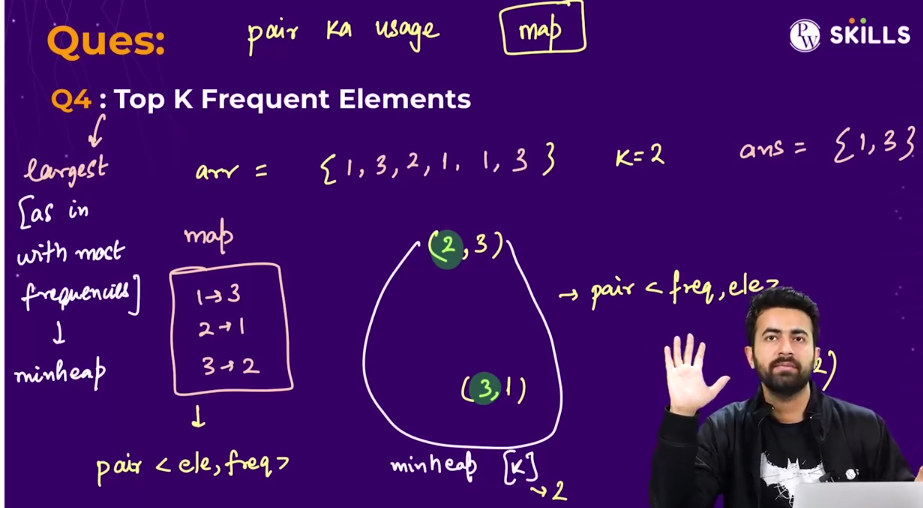 Ques:
pair ka usage
map
PW SKILLS
Q4 : Top K Frequent Elements
largest
[as in
with most
frequencies]
↓
minheap
arr = {1, 3, 2, 1, 1, 3}
K=2
ans = {1,3}
map
1→3
2→1
3→2
↓
pair < ele, freq>
(2,3)
(3,1)
minheap [K]
→2
→ pair < freq, ele>
2)